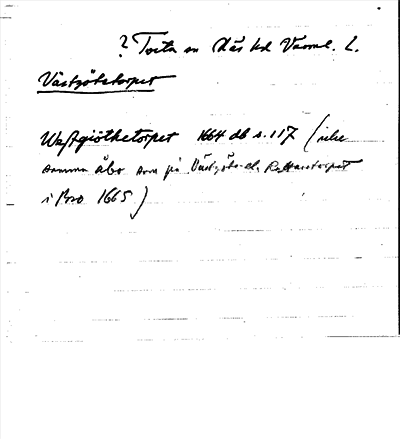 ? Torta sn Näs hd Värml. L.
Västgötetorpet
Wästgiöthetorpet 1664 db s. 117 (icke
samma åbo som på Västgöte- el. Ryttaretorpet
i Bro 1665)